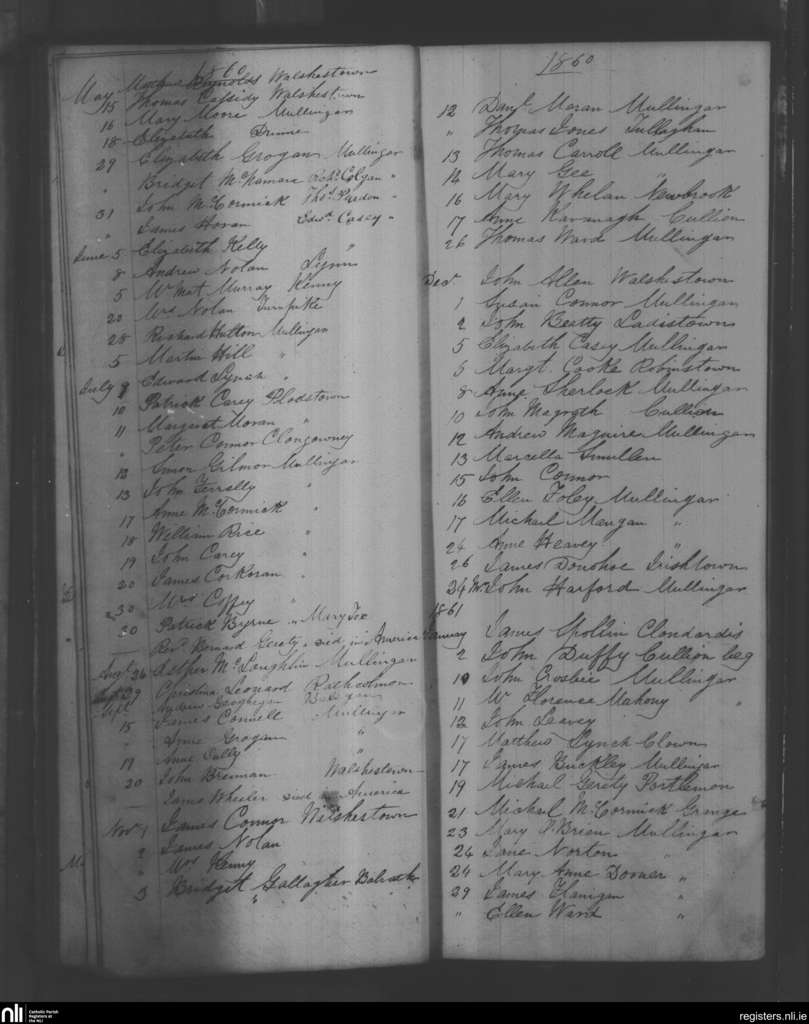 1860
May Matthew Reynolds Walshestown
15 Thomas Cassidy Walshestown
16 Mary Moore Mullingar
18 Elizabeth
29 Elizabeth Grogan Mullingar
" Bridget McNamara Colgan "
31 John McCormick Thos "
" James Horan Edwd Casey "
June 5 Elizabeth Kelly "
8 Andrew Nolan Lynn
5 Wm Mat Murray Kenny
20 Mrs Nolan Turnpike
28 Richard Hutton Mullingar
5 Martin Hill "
July 9 Edward Lynch "
10 Patrick Carey Plodstown
11 Margaret Moran "
" Peter Connor Clongowney
12 Gilmor Mullingar
13 John "
17 Anne McCormick "
18 William Rice
19 John Carey "
20 James Corkoran "
30 Mrs Coffey
20 Patrick Byrne " Mary Fox
Revd Bernard Geraty died in America
Augt 26 McLoughlin Mullingar
29 Christina Leonard
Sept Geoghegan
15 James Connell Mullingar
" Anne Grogan "
19 Anne Tully "
30 John Brennan Walshestown
James Wheeler died in America
Novr 1 James Connor Walshestown
2 James Nolan
" Mrs Kenny
3 Bridget Gallagher Balrath
1860
12 Danl Moran Mullingar
" Thomas Jones Tullaghan
13 Thomas Carroll Mullingar
14 Mary Gee "
16 Mary Whelan Newbrook
17 Anne Kavanagh Cullion
26 Thomas Ward Mullingar
Decr John Allen Walshestown
1 Susan Connor Mullingar
2 John Beatty Ladistown
5 Elizabeth Casey Mullingar
6 Margt Cooke Robinstown
8 Anne Sherlock Mullingar
10 John Megroth Cullion
12 Andrew Maguire Mullingar
13 Marcella Smullen
15 John Connor
16 Ellen Foley Mullingar
17 Michael Mangan "
24 Anne Heavey "
26 James Donohoe Irishtown
24 Mr John Harford Mullingar
1861
January James Clondardis
2 John Duffy Cullion beg
10 John Crosbie Mullingar
11 W Florence Mahony "
12 John Leavey
17 Matthew Lynch Clown
17 James Buckley Mullingar
19 Michael Gerety Portlemon
21 Michael McCormick Grange
23 Mary O'Brien Mullingar
24 Jane Norton "
24 Mary Anne Doorner "
29 James Flanigan "
" Ellen Ward "
nli Catholic Parish Registers at the NLI
registers.nli.ie